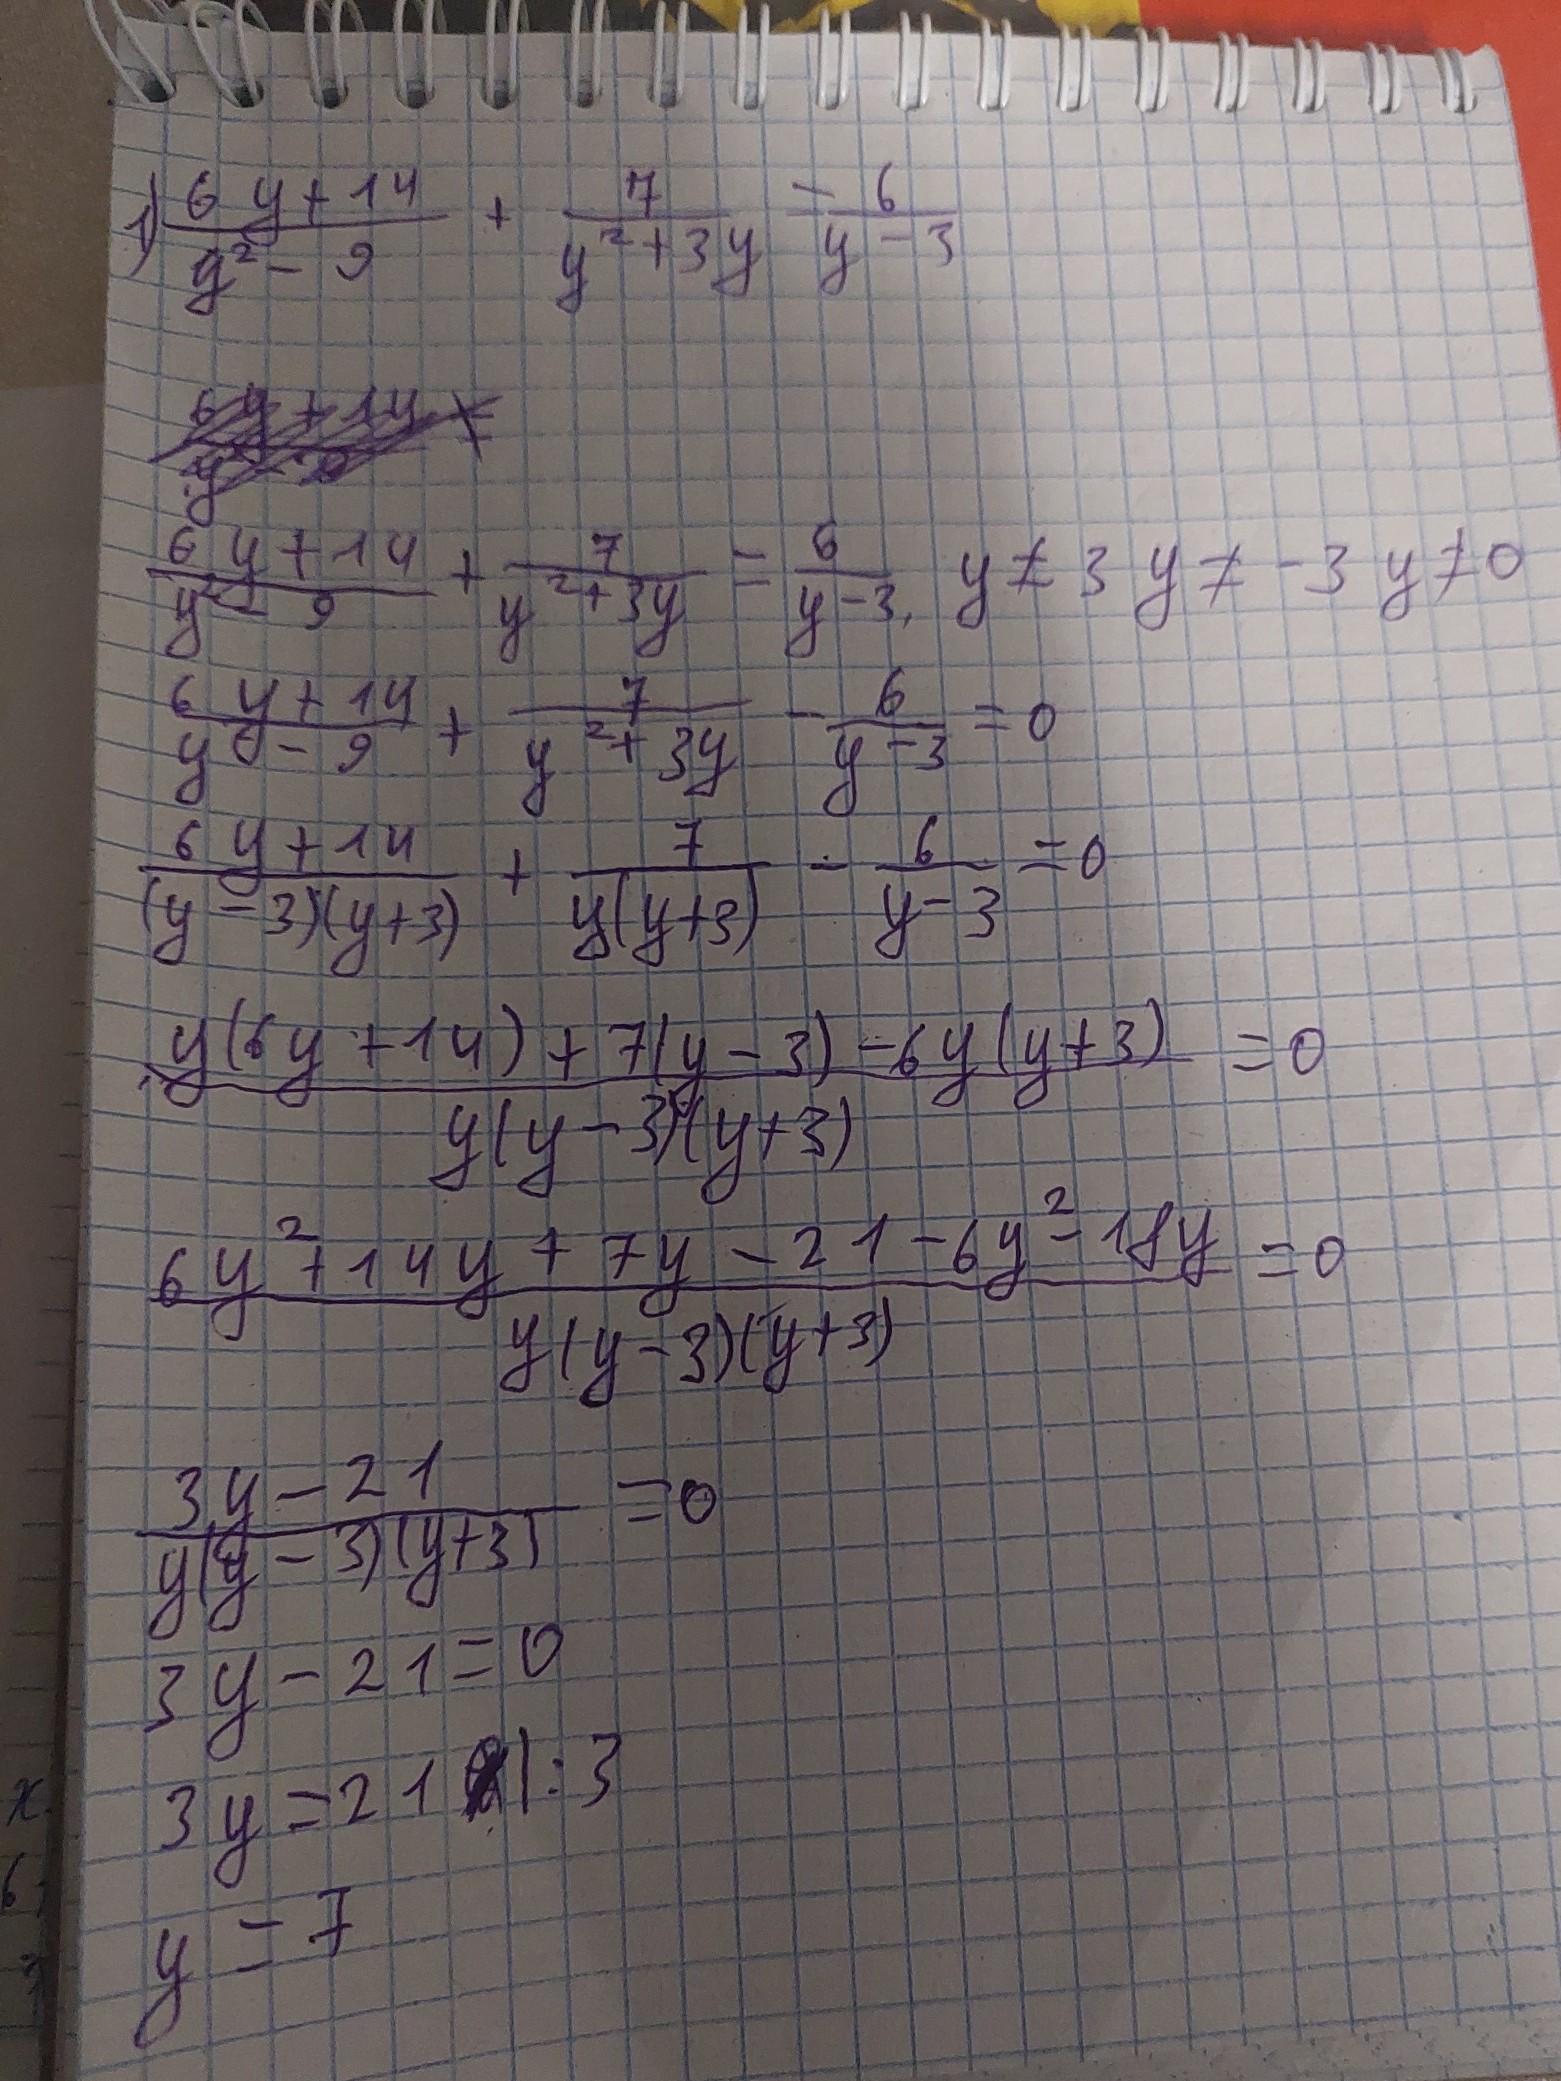 1) (6y+14)/(y²-9) + 7/(y²+3y) = 6/(y-3)
(6y+14)/(y²-9) + 7/(y²+3y) = 6/(y-3), y≠3 y≠-3 y≠0
(6y+14)/(y²-9) + 7/(y²+3y) - 6/(y-3) = 0
(6y+14)/((y-3)(y+3)) + 7/(y(y+3)) - 6/(y-3) = 0
(y(6y+14)+7(y-3)-6y(y+3))/(y(y-3)(y+3)) = 0
(6y²+14y+7y-21-6y²-18y)/(y(y-3)(y+3)) = 0
(3y-21)/(y(y-3)(y+3)) = 0
3y-21=0
3y=21 |:3
y=7